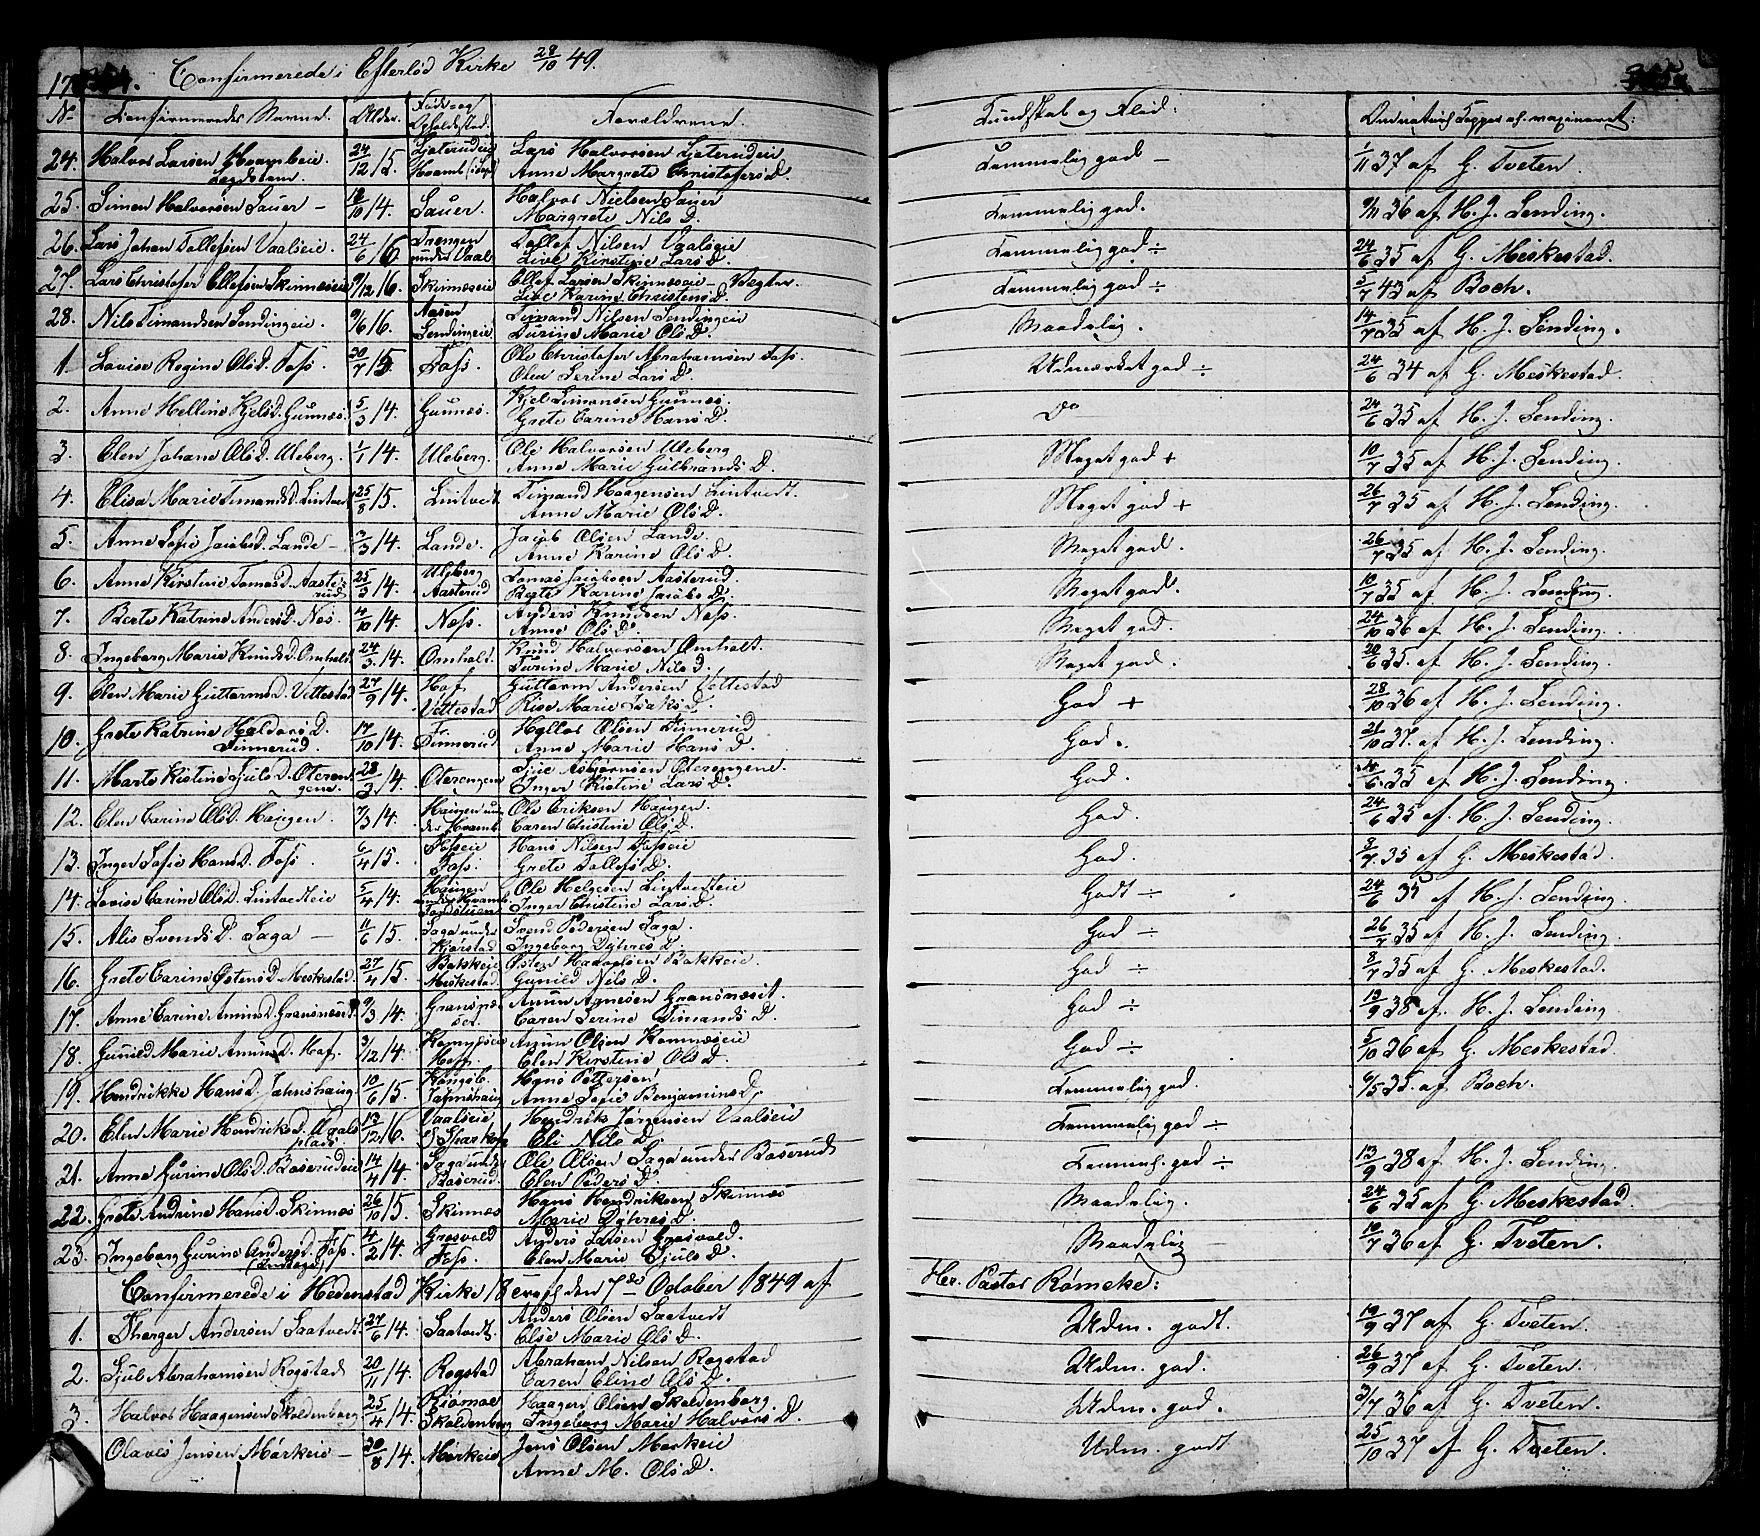 Confirmerede i Efterlød Kirke 28/10 49.
No Confirmeredes Navne. Alder. Føde og Opholdssted. Forældrene. Kundskab og Flid.
24. Halvor Larsen 24/12 15. Lars Halvorsen Anne Margrete Christofersd. Temmelig god — 1/11 37 af G. Tveten.
25. Simen Halvorsen Sauer — 18/10 14. Sauer. Halvor Nielsen Sauer Margrete Nils D. Temmelig god. 9/11 36 af H. J. Lending.
26. Lars Johan Tollefsen Vaalseie. 24/6 16. under Vaal Tollef Nilsen Vaalseie Live Kirstine Lars D. Temmelig god ÷ 24/6 35 af G. Meskestad.
27. Lars Christofer Ellefsen Skinnæseie 9/12 16. Skinnæseie Ellef Larsen Skinnæseie Live Karine Christens D. Temmelig god ÷ 5/7 43 af Boch.
28. Nils Simandsen Lendingeie. 9/6 16. Lendingeie Simand Nilsen Lendingeie Turine Marie Ols D. Maadelig. 14/7 35 af H. J. Lending.
1. Lovise Regine Ols D. Foss. 20/7 15. Foss. Ole Christofer Abrahamsen Foss. Olea Serine Lars D. Udmærket god ÷ 24/6 34 af G. Meskestad.
2. Anne Helline Kjels D. Gunnæs. 5/3 14. Gunnæs. Kjel Simensen Gunnæs. Grete Carine Hans D. Do 24/6 35 af H. J. Lending.
3. Elen Johane Ols D. Uleberg. 1/1 14. Uleberg. Ole Halvorsen Uleberg Anne Marie Gulbrands D. Meget god + 10/7 35 af H. J. Lending.
4. Elisa Marie Simands D. Lintvedt 25/8 15. Lintvedt Simand Haagensen Lintvedt. Anne Marie Ols D. Meget god + 26/7 35 af H. J. Lending.
5. Anne Sofie Jacobs D. Lande — /3 14. Lande. Jacob Olsen Lande. Anne Karine Ols D. Meget god. 26/7 35 af H. J. Lending.
6. Anne Kirstine Tomas D. Aasterud. 25/3 14. Uleberg Aasterud Tomas Jacobsen Aasterud. Berte Karine Jacobs D. Meget god. 10/7 35 af H. J. Lending.
7. Berte Katrine Anders D. Næs. 4/10 14. Næss. Anders Knudsen Næss. Anne Ols D. Meget god. 24/10 36 af H. J. Lending.
8. Ingeborg Marie Knuds D. Omholt. 24/3 14. Omholt. Knud Halvorsen Omholt. Turine Marie Nils D. Meget god. 20/6 35. af H. J. Lending.
9. Elen Marie Guttorms D. Vettestad 27/9 14. Hof Vettestad Guttorm Andersen Vettestad Marie Isaks D. God + 28/10 36 af H. J. Lending.
10. Grete Katrine Haldors D. Finnerud. 17/10 14. Finnerud Olsen Finnerud Anne Marie Hans D. God. 21/10 37. af H. J. Lending.
11. Marte Kistine Sjuls D. Oterengene. 28/3 14. Oterengene Asbjørnsen Oterengene. Inger Kistine Lars D. God. 14/6 35 af H. J. Lending.
12. Elen Carine Ols D. Haugen. 7/3 14. Haugen under Hvamb Ole Eriksen Haugen. Caren Christine Ols D. God. 24/6 35 af. H. J. Lending.
13. Inger Sofie Hans D. Foss. 6/4 15. Fosseie Foss. Hans Nilsen Fosseie Grete Tollefs D. God. 3/7. 35 af G. Meskestad.
14. Lovise Carine Ols D. Lintvedteie 5/4 14. Haugen under Hvamb Ole Helgesen Lintvedteie Inger Christine Lars D. Godt ÷ 24/6 35 af H. J. Lending.
15. Alis Svends D. Saga — 11/6 15. Saga under Kjørstad Svend Pedersen Saga. Ingeborg Dyhres D. God ÷ 26/7 35 af H. J. Lending.
16. Grete Carine Østens D. Meskestad. 27/4 15. Bakkeie Meskestad Østen Bakkeie. Gunild Nils D. God ÷ 8/7 35 af G. Meskestad.
17. Anne Carine Amuns D. Gransneset 9/3 14. Gransneset. Amun Agnesen Gransneset. Caren Serine Simands D. God ÷ 19/9 38 af H. J. Lending
18. Gunild Marie Amuns D. Hof. 3/12 14. Hoff. Amun Olsen Elen Kirstine Ols D. God ÷ 5/10 36 af G. Meskestad.
19. Hendrikke Hans D. Jahnshaug. 10/6 15. Kongsb. Jahnshaug Hans Pettersen Anne Sofie Benjamins D. Temmelig god. 6/5 35. af Boch.
20. Elen Marie Hendriks D. 13/12 16. Vaalseie Hendrik Jørgensen Vaalseie Eli Nils D. Temmelig god ÷
21. Anne Gurine Ols D. Baserudeie 14/4 14. Saga under Baserud. Ole Olsen Saga under Baserud Elen Peders D. Temmel. god ÷ 13/9 38 af H. J. Lending.
22. Grete Andrine Hans D. Skinnæs 26/10 15. Skinnæs Hans Hendriksen Skinnæs Marie Dyhres D. Maadelig. 24/6 35 af G. Meskestad.
23. Ingeborg Gurine Anders D. Foss. 4/2 14. Grosvold Foss. Anders Larsen Grosvold. Elen Marie Sjuls D. Maadelig 10/7 36 af G. Tveten.
Confirmerede i Hedenstad Kirke 18 den 7de October 1849 af Her. Pastor Rømcke:
1. Andersen Saatvedt. 27/6 14. Saatvedt. Anders Olsen Saatvedt Else Marie Ols D. Udm. godt. 19/9 37 af G. Tveten.
2. Sjul Abrahamsen Rogstad 20/11 14. Rogstad Abraham Nilsen Rogstad Caren Eline Ols D. Udm. god. 26/9 37 af G. Tveten.
3. Halvor Haagensen Skoldenberg 25/4 14. Skoldenberg Haagen Olsen Skoldenberg. Ingeborg Marie Halvors D. Udm. god. 3/7 36 af G. Tveten.
Olaves Jensen Mørkeie — 30/8 14. Mørkeie Jens Olsen Mørkeie Anne M. Ols D. Udm. godt 25/10 37 af G. Tveten.